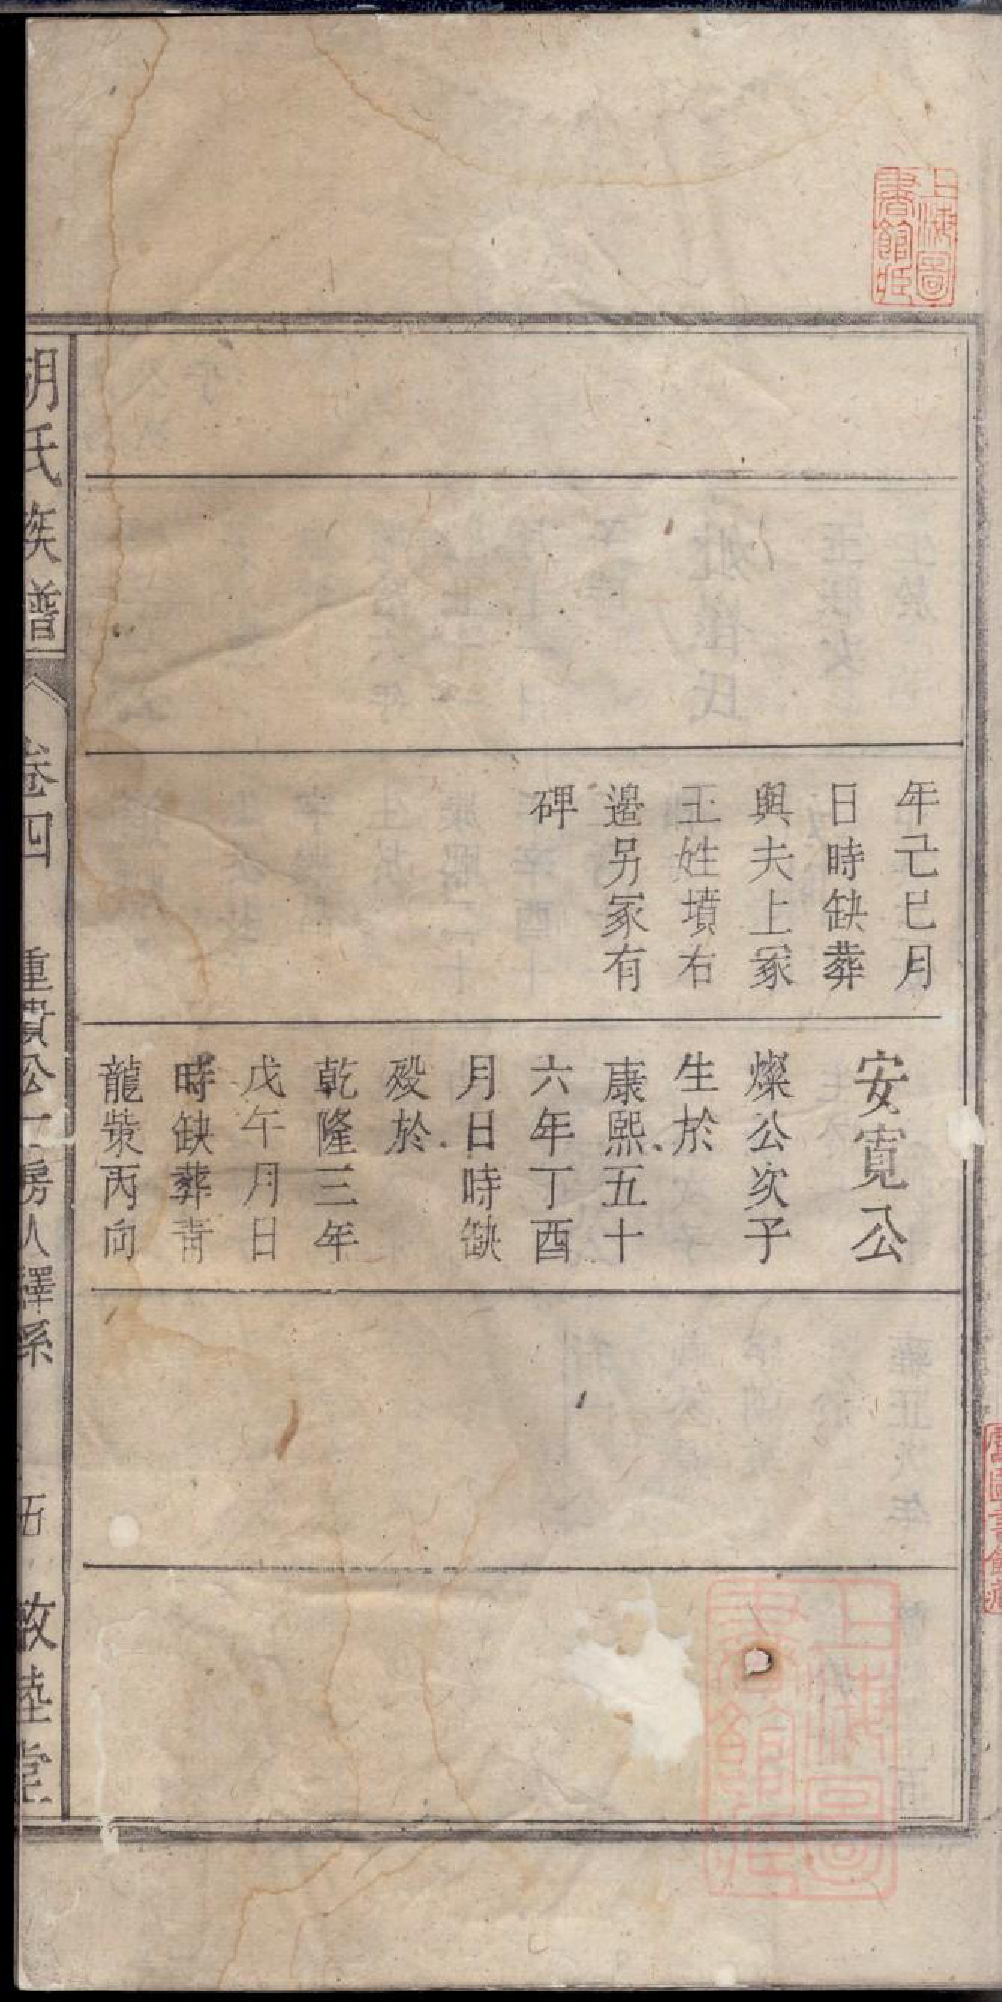 上海圖
書館藏
年己巳月
日時缺葬
與夫上冢
王姓墳右
邉另冢有
碑
安寬公
燦公次子
生於
康熙五十
六年丁酉
月日時缺
歿於
乾隆三年
戊午月日
時缺葬青
龍塋丙向
胡氏族譜
卷四
重貴公一房人繹系
五
敦睦堂
上海圖
書館藏